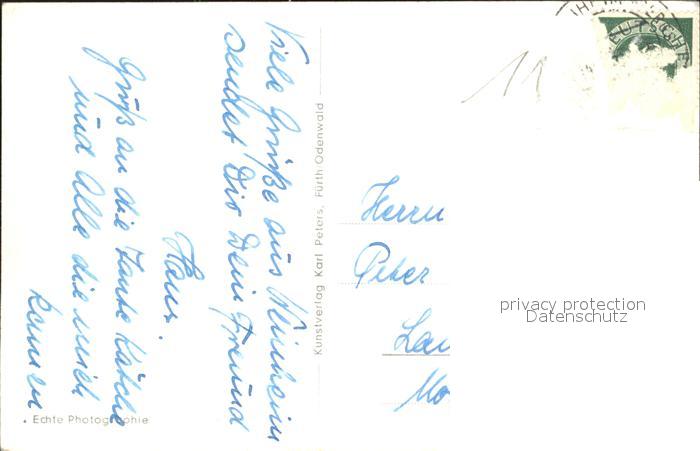 Viele Grüße aus Weinheim
sendet Dir Dein Freund
Hans.
Gruß an die Tante Kätche
und Alle die mich
kennen
Echte Photographie
Kunstverlag Karl Peters, Fürth Odenwald
11
DEUTSCHE
Herrn
Peter
privacy protection
Datenschutz